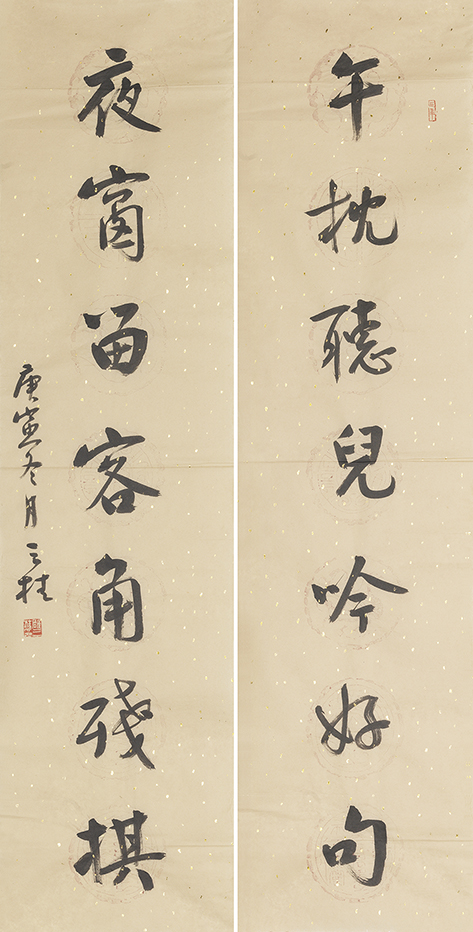 午枕聽兒吟好句
夜窗留客角殘棋
庚寅冬月之桂